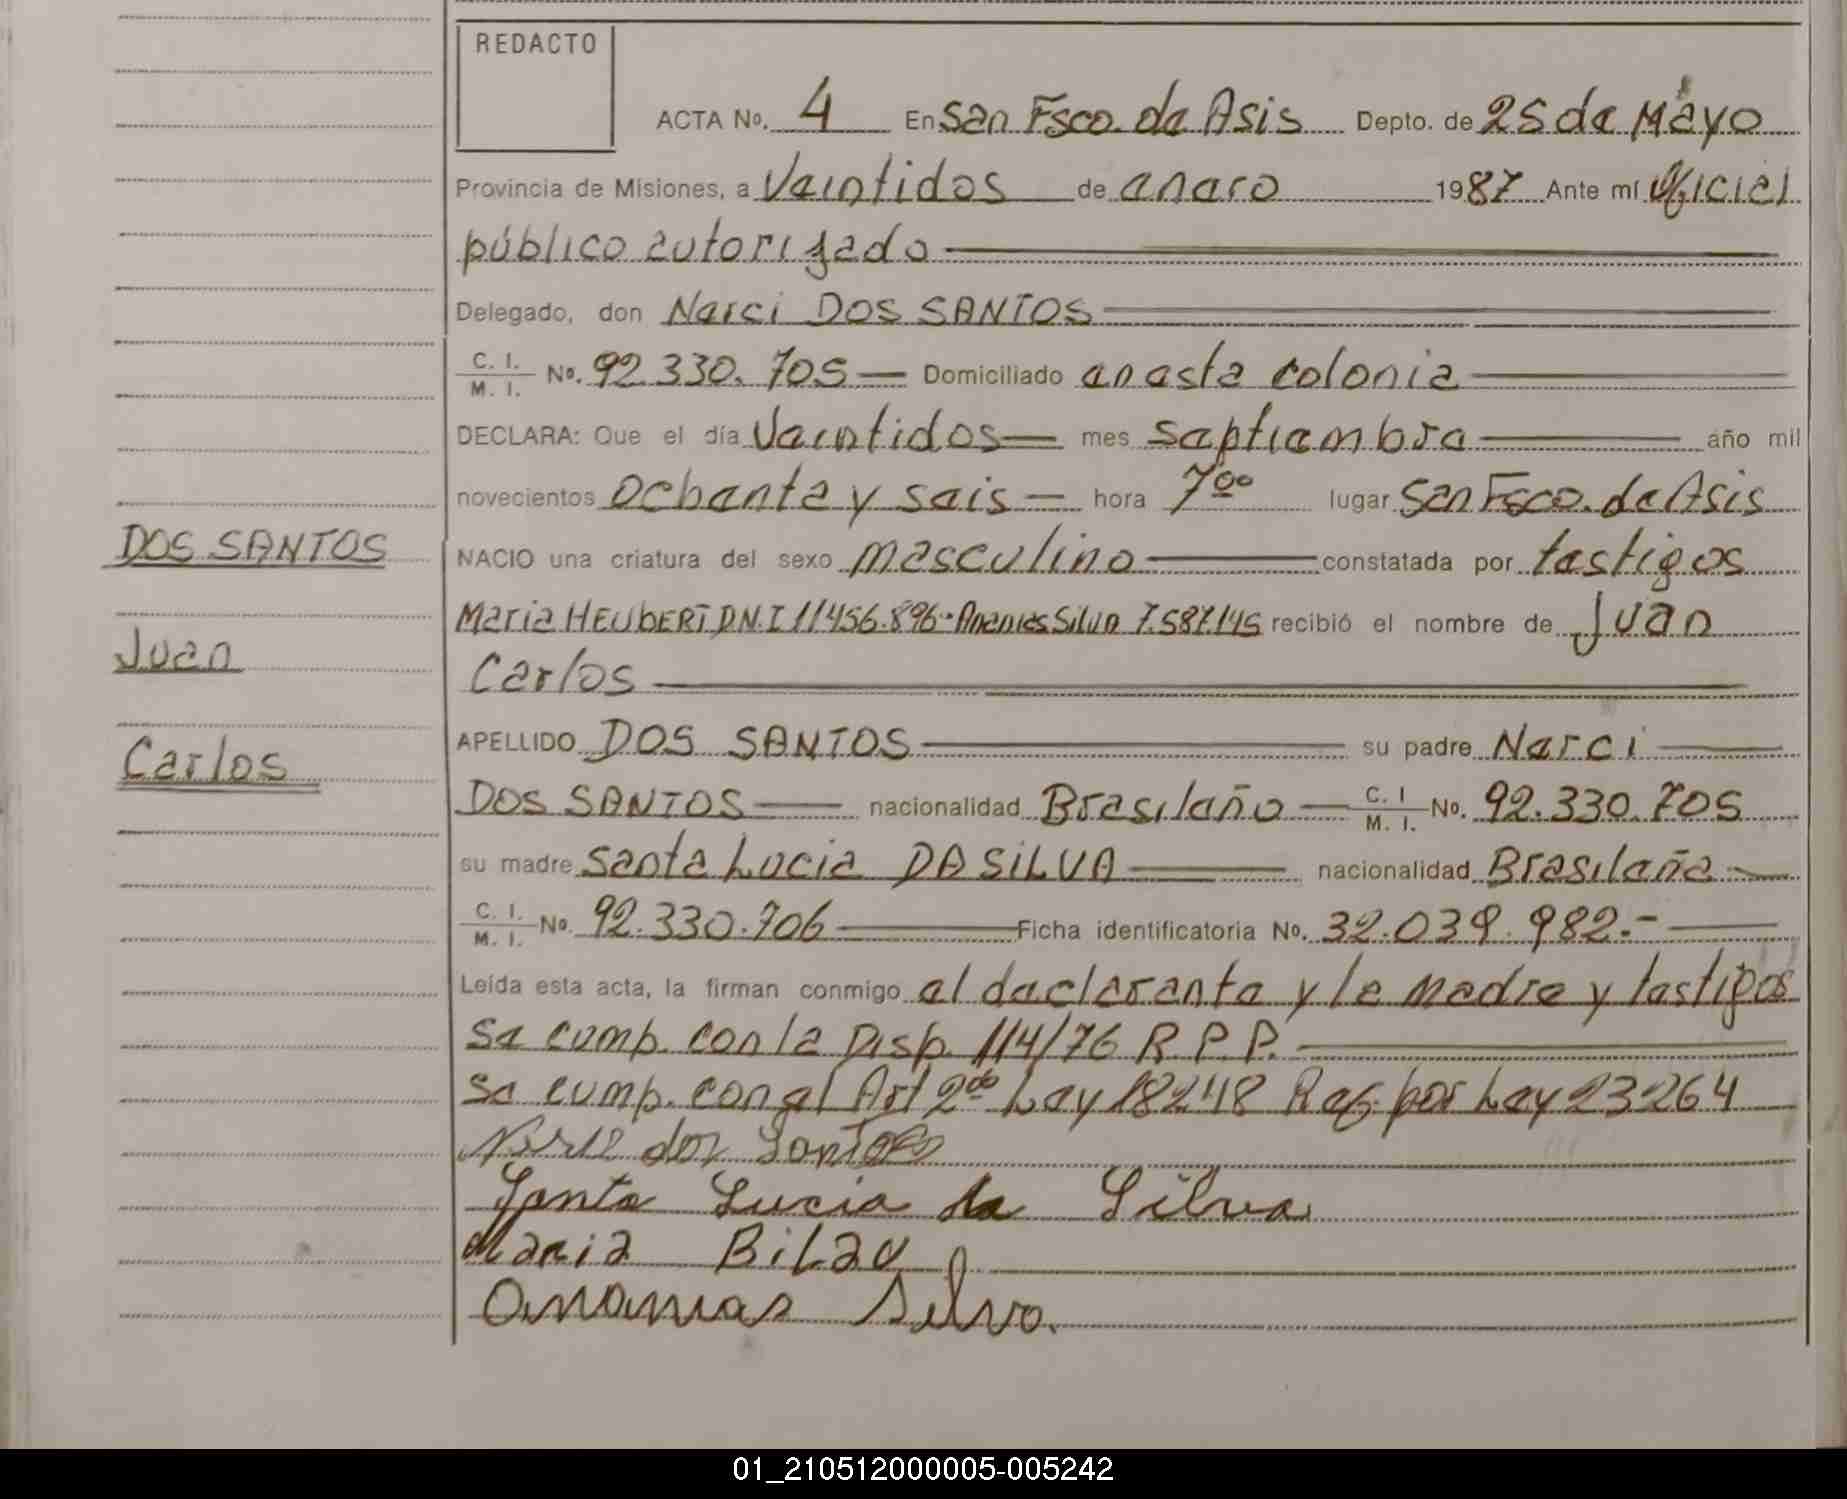 REDACTO
ACTA No. 4 En San Fsco. de Asis Depto. de 25 de Mayo
Provincia de Misiones, a Veintidos de enero 1987 Ante mí Oficial
público autorizado
Delegado, don Narci DOS SANTOS
C. I. / M. I. No. 92.330.705 Domiciliado en esta colonia
DECLARA: Que el día Veintidos mes septiembre año mil
novecientos Ochenta y seis hora 7 00 lugar San Fsco. de Asis
DOS SANTOS
NACIO una criatura del sexo masculino constatada por testigos
Maria HEUBERT D.N.I 11456.896 - Ananias Silva 7.587.145 recibió el nombre de Juan
Juan
Carlos
APELLIDO DOS SANTOS su padre Narci
Carlos
DOS SANTOS nacionalidad Brasileño C. I / M. I. No. 92.330.705
su madre Santa Lucia DA SILVA nacionalidad Brasileña
C. I. / M. I. No. 92.330.706 Ficha identificatoria No. 32.039.982.-
Leída esta acta, la firman conmigo el declarante y la madre y testigos
Se cump. con la Disp. 114/76 R.P.P.
Se cump. con el Art 2do Ley 18248 Ref. por Ley 23264
dos Santos
Santa Lucia da Silva
Maria Bilau
Ananias Silva.
01_210512000005-005242